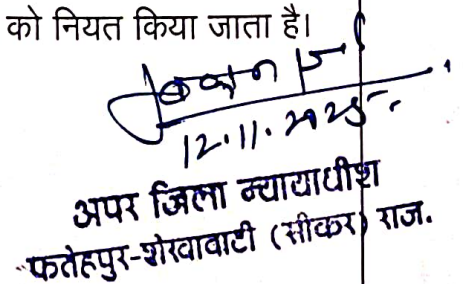 को नियत किया जाता है।
12.11.2025
अपर जिला न्यायाधीश
फतेहपुर-शेखावाटी (सीकर) राज.